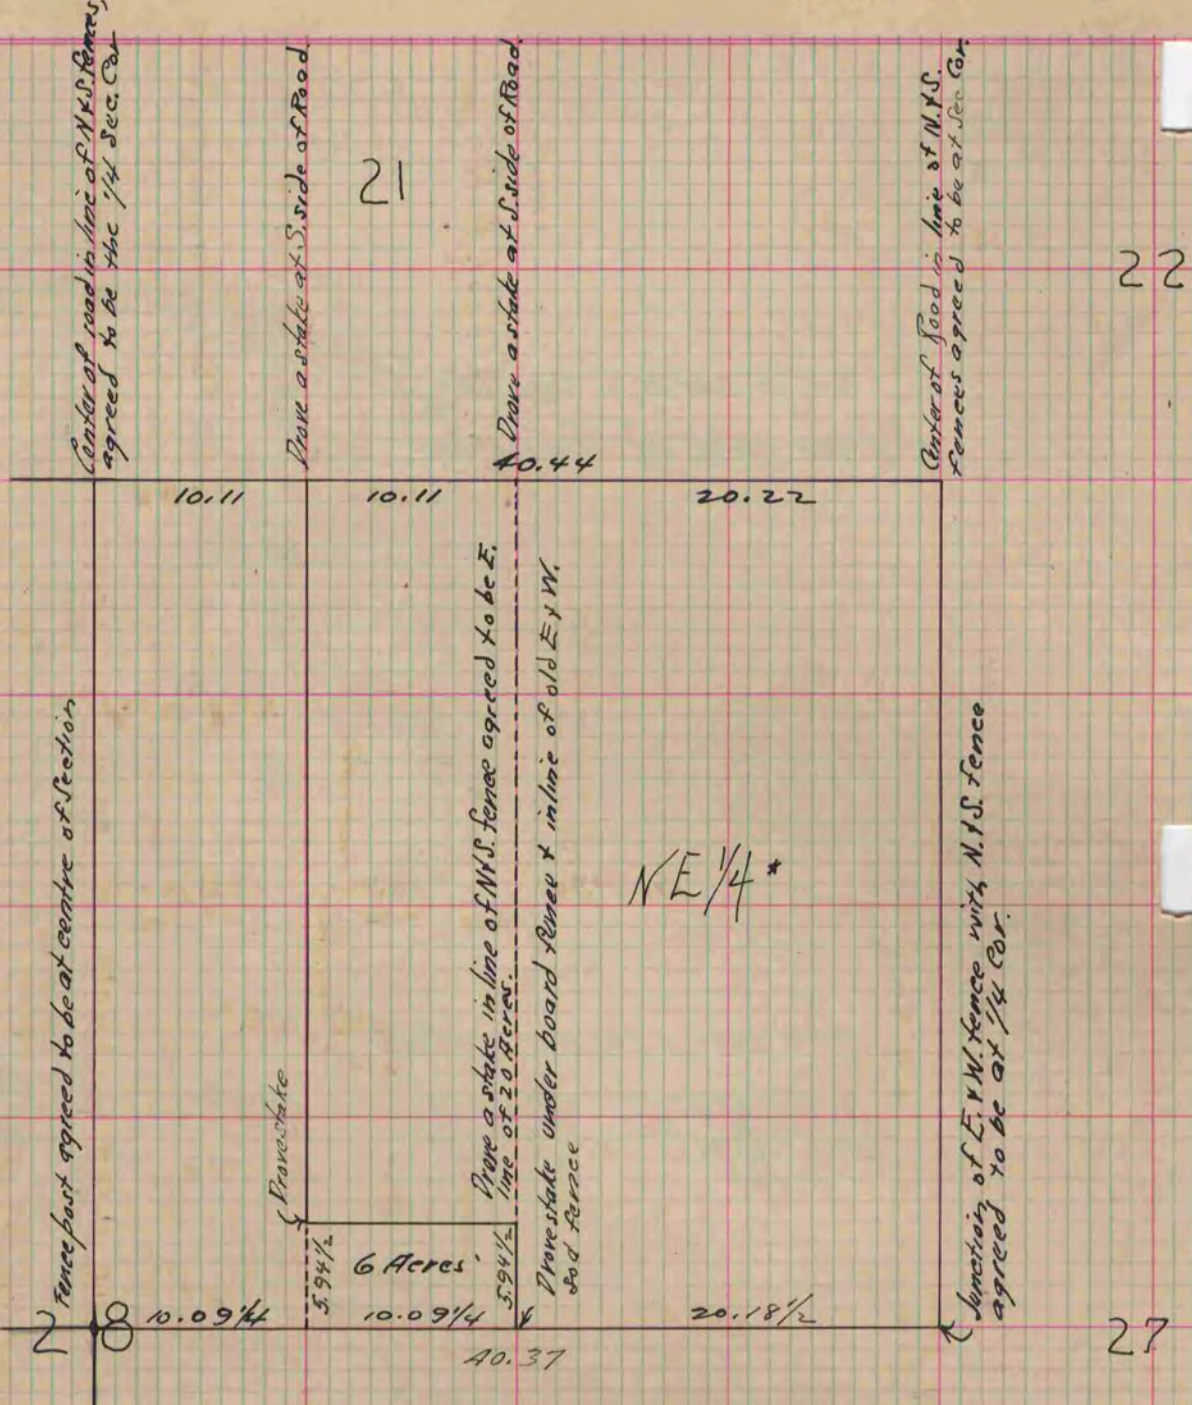 Center of road in line of N & S. fences,
agreed to be the 1/4 Sec. Cor
Drove a stake at S. side of Road
21
Drove a stake at S. side of Road.
Center of Road in line of N. & S.
fences agreed to be at Sec Cor.
22
40.44
10.11
10.11
20.22
Fence post agreed to be at centre of Section
Drove stake
Drove a stake in line of N & S. fence agreed to be E.
line of 20 Acres.
Drove stake under board fence & in line of old E & W.
sod fence
NE 1/4 *
Junction of E. & W. fence with N. & S. fence
agreed to be at 1/4 Cor.
5.94 1/2
6 Acres
5.94 1/2
28
10.09 1/4
10.09 1/4
20.18 1/2
27
40.37